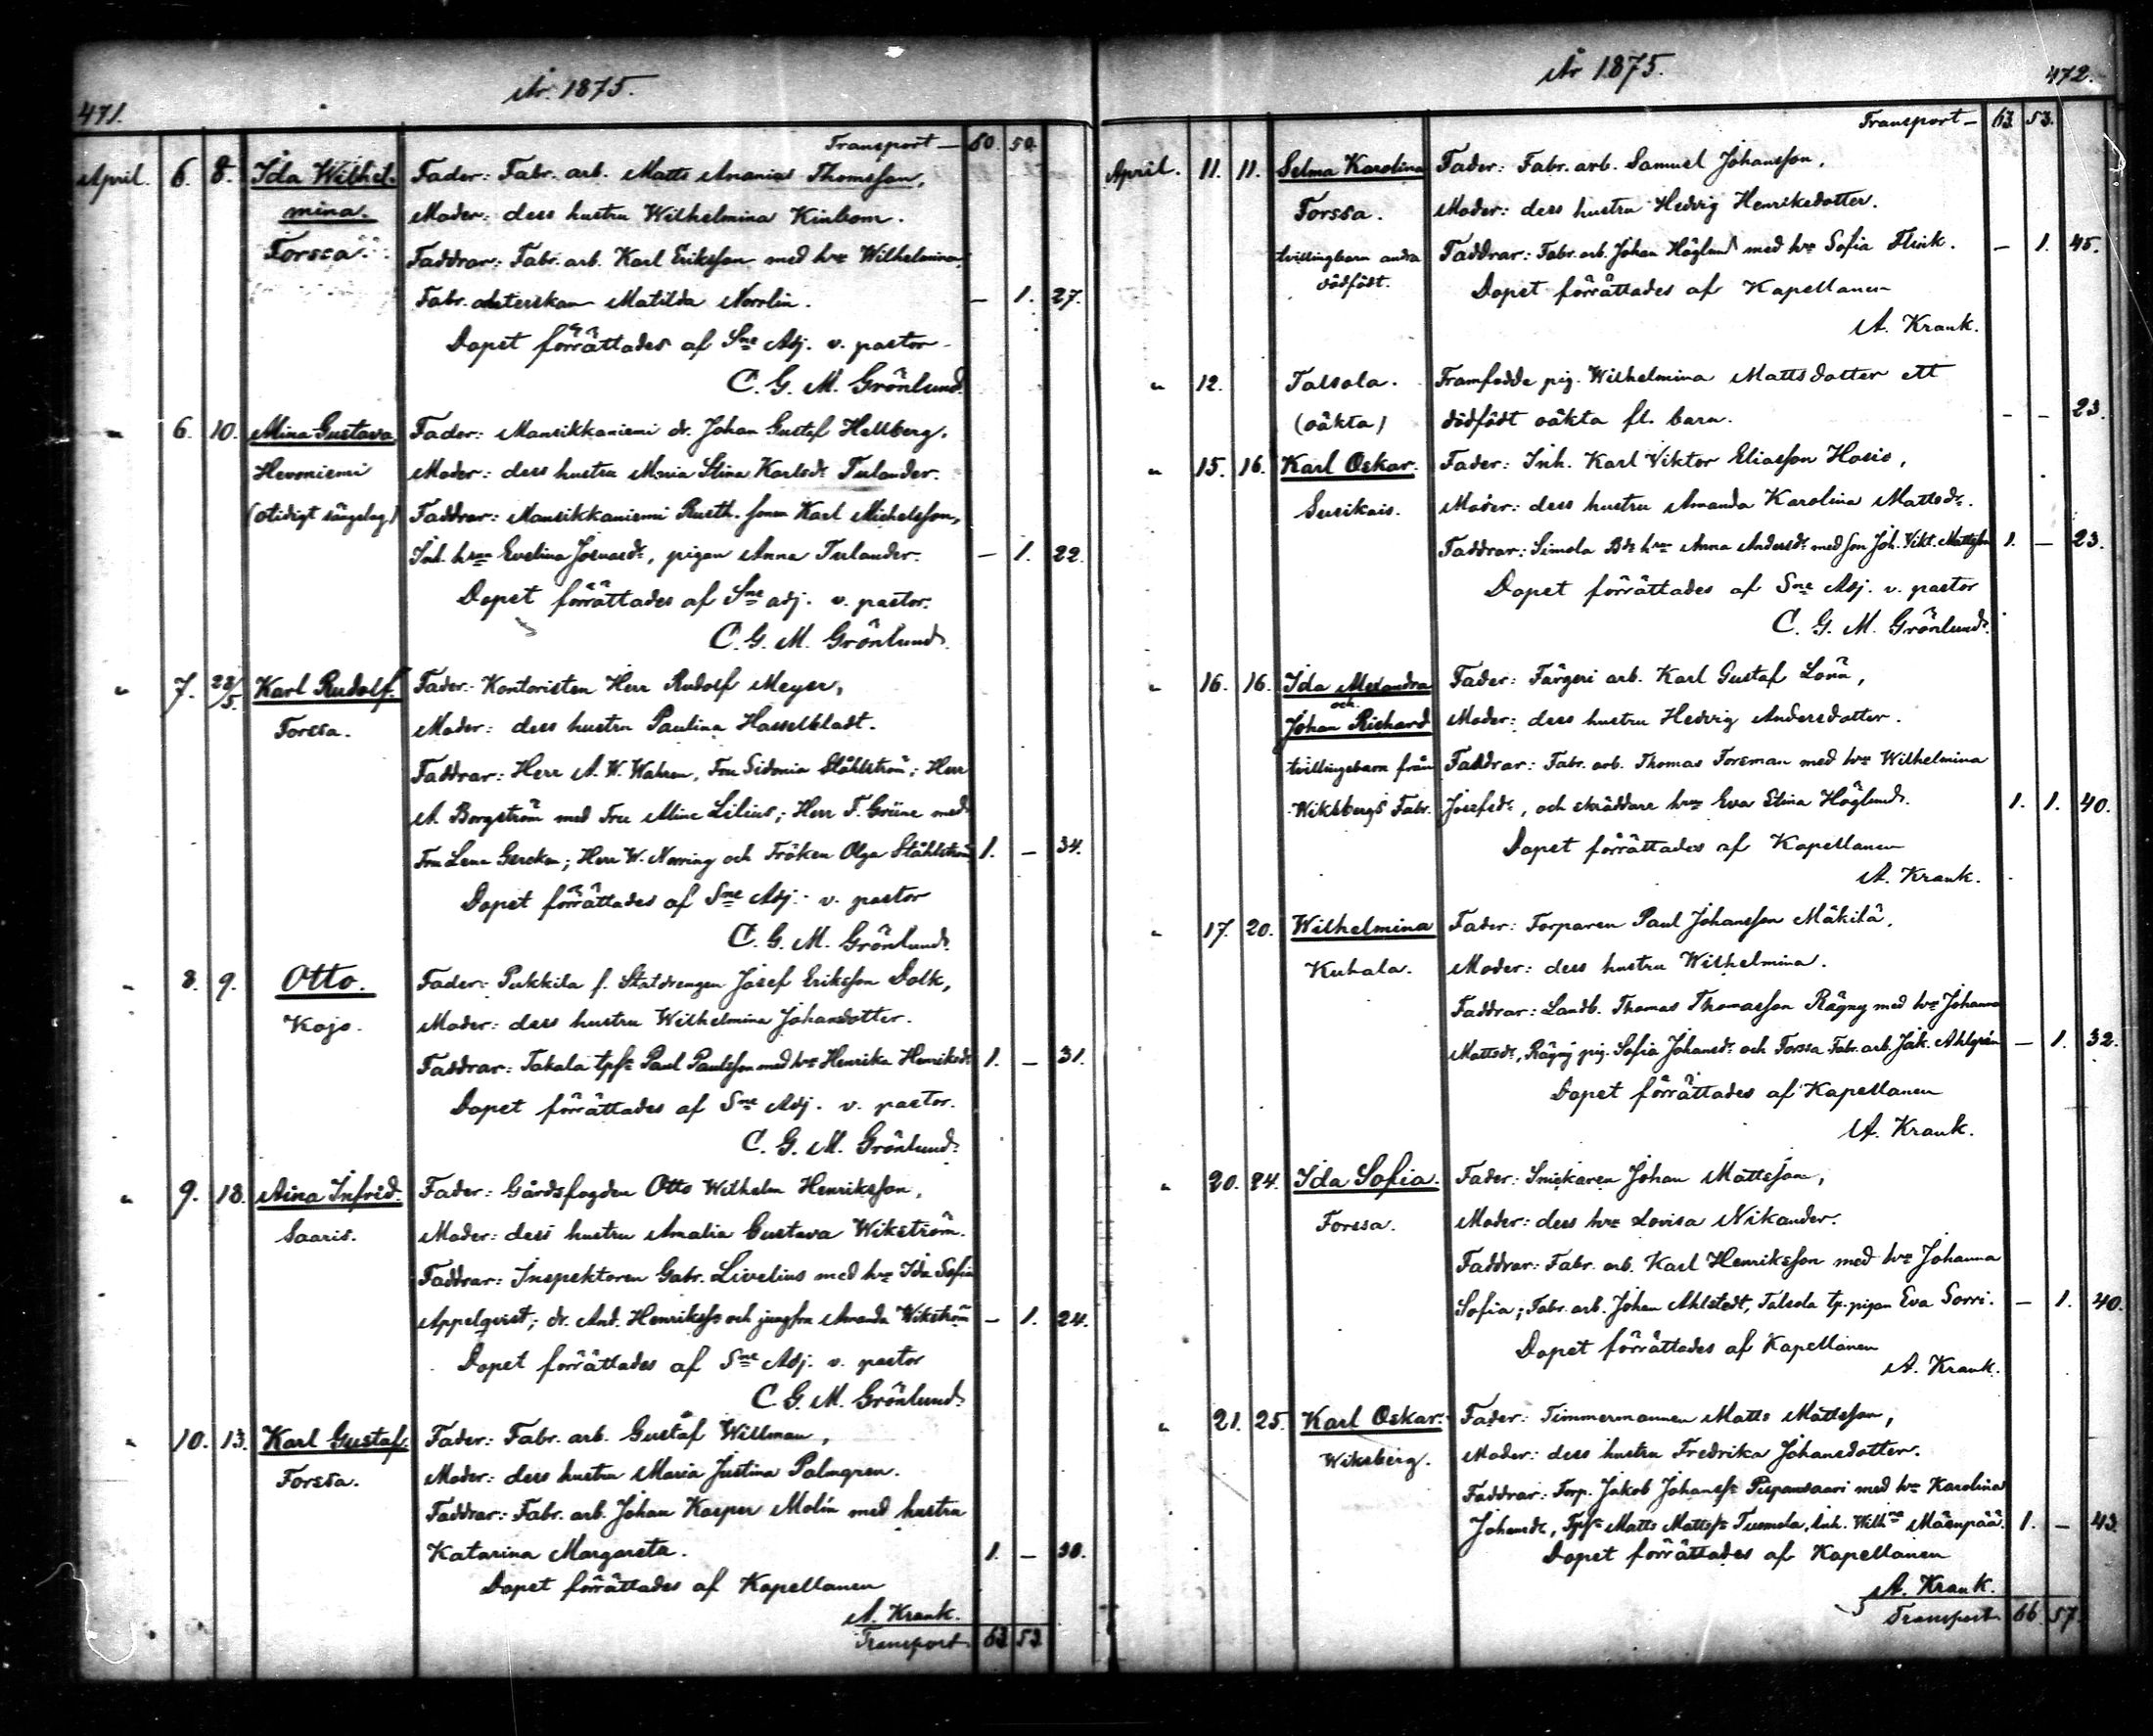 471.
År 1875.
Transport — 60. 50.
April. 6. 8. Ida Wilhel- Fader: Fabr. arb. Matts Ananias Thomsson,
mina. Moder: dess hustru Wilhelmina Kinbom.
Forssa. Faddrar: Fabr. arb. Karl Eriksson med hru Wilhelmina,
Fabr. arbeterskan Matilda Norrlin. — 1. 27.
Dopet förrättades af Sne Adj. v. pastor
C. G. M. Grönlund.
" 6. 10. Mina Gustava Fader: Mansikkaniemi dr. Johan Gustaf Hellberg.
Hevoniemi Moder: dess hustru Maria Stina Karlsdr Tulander.
(otidigt sängelag) Faddrar: Mansikkaniemi Rusth. sonen Karl Michelsson,
Inh. hru Evelina Josuasdr, pigan Anna Tulander. — 1. 22.
Dopet förrättades af Sne adj. v. pastor.
C. G. M. Grönlund.
" 7. 23/5. Karl Rudolf. Fader: Kontoristen Herr Rudolf Meyer,
Forssa. Moder: dess hustru Paulina Hasselbladt.
Faddrar: Herr A. W. Wahren, Fru Sidonia Ståhlström; Herr
A. Borgström med Fru Mine Lilius; Herr F. Grüne med
Fru Lena Gercken; Herr W. Norring och Fröken Olga Ståhlström 1. — 34.
Dopet förrättades af Sne Adj. v. pastor
C. G. M. Grönlund.
" 8. 9. Otto. Fader: Pukkila f. Statdrengen Josef Eriksson Dolk,
Kojo. Moder: dess hustru Wilhelmina Johansdotter.
Faddrar: Takala tpsn Paul Paulsson med hru Henrika Henriksdr 1. — 31.
Dopet förrättades af Sne Adj. v. pastor.
C. G. M. Grönlund.
" 9. 18. Aina Infrid. Fader: Gårdsfogden Otto Wilhelm Henriksson,
Saaris. Moder: dess hustru Amalia Gustava Wikström.
Faddrar: Inspektoren Gabr. Livelius med hru Ida Sofia
Appelqvist; dr. And. Henrikss. och jungfru Amanda Wikström — 1. 24.
Dopet förrättades af Sne Adj. v. pastor
C. G. M. Grönlund.
" 10. 13. Karl Gustaf. Fader: Fabr. arb. Gustaf Willman,
Forssa. Moder: dess hustru Maria Justina Palmgren.
Faddrar: Fabr. arb. Johan Kasper Molin med hustru
Katarina Margareta. 1. — 30.
Dopet förrättades af Kapellanen
A. Krank.
Transport 63 53
År 1875.
472.
Transport — 63. 53.
April. 11. 11. Selma Karolina Fader: Fabr. arb. Samuel Johansson,
Forssa. Moder: dess hustru Hedvig Henriksdotter.
tvillingbarn andra Faddrar: Fabr. arb. Johan Höglund med hru Sofia Flink. — 1. 45.
dödfödt. Dopet förrättades af Kapellanen
A. Krank.
" 12. Talsola. Framfödde pig. Wilhelmina Mattsdotter ett
(oäkta) dödfödt oäkta fl. barn. — — 23.
" 15. 16. Karl Oskar. Fader: Inh. Karl Viktor Eliasson Hasio,
Susikais. Moder: dess hustru Amanda Karolina Mattsdr.
Faddrar: Simola Bds hru Anna Andersdr med son Joh. Vikt. Mattsson 1. — 23.
Dopet förrättades af Sne Adj. v. pastor
C. G. M. Grönlund.
" 16. 16. Ida Alexandra Fader: Färgeri arb. Karl Gustaf Lönn,
och
Johan Richard Moder: dess hustru Hedvig Andersdotter.
tvillingebarn från Faddrar: Fabr. arb. Thomas Forsman med hru Wilhelmina
Wiksbergs Fabr. Josefsdr, och skräddare hru Eva Stina Höglund. 1. 1. 40.
Dopet förrättades af Kapellanen
A. Krank.
" 17. 20. Wilhelmina Fader: Torparen Paul Johansson Mäkilä,
Kuhala. Moder: dess hustru Wilhelmina.
Faddrar: Landb. Thomas Thomasson Rägny med hru Johanna
Mattsdr, Rägny pig. Sofia Johansdr och Forssa Fabr. arb. Jak. Ahlgrén — 1. 32.
Dopet förrättades af Kapellanen
A. Krank.
" 20. 24. Ida Sofia. Fader: Snickaren Johan Mattsson,
Forssa. Moder: dess hru Lovisa Nikander.
Faddrar: Fabr. arb. Karl Henriksson med hru Johanna
Sofia; Fabr. arb. Johan Ahlstedt, Talsola tp. pigan Eva Sorri. — 1. 40.
Dopet förrättades af Kapellanen
A. Krank.
" 21. 25. Karl Oskar. Fader: Timmermannen Matts Mattsson,
Wiksberg. Moder: dess hustru Fredrika Johansdotter.
Faddrar: Torp. Jakob Johanss. Pispansaari med hru Karolina
Johansdr, Tpsn Matts Mattss. Tuomola, Inh. Wilhna Mäenpää. 1. — 43.
Dopet förrättades af Kapellanen
A. Krank.
Transport 66 57.